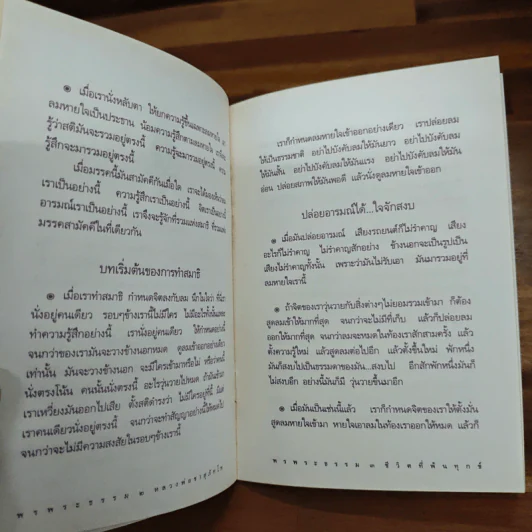 ๏ เมื่อเรานั่งหลับตา ให้ยกความรู้ขึ้นเฉพาะลมหายใจ เอา
ลมหายใจเป็นประธาน น้อมความรู้สึกตามลมหายใจ
รู้ว่าสติมันจะรวมอยู่ตรงนี้ ความรู้จะมารวมอยู่ตรงนี้ ความ
รู้สึกจะมารวมอยู่ตรงนี้
เมื่อมรรคนี้มันสามัคคีกันเมื่อใด เราจะได้มองเห็นว่าสติ
เราเป็นอย่างนี้ ความรู้สึกเราเป็นอย่างนี้ จิตเราเป็นอย่างนี้
อารมณ์เราเป็นอย่างนี้ เราจึงจะรู้จักที่รวมแห่งสมาธิ ที่รวมแห่ง
มรรคสามัคคีในที่เดียวกัน
บทเริ่มต้นของการทำสมาธิ
๏ เมื่อเราทำสมาธิ กำหนดจิตลงกับลม นึกในใจว่า ที่นี่เรา
นั่งอยู่คนเดียว รอบๆข้างเรานี้ไม่มีใคร ไม่มีอะไรทั้งนั้นแหละ
ทำความรู้สึกอย่างนี้ เรานั่งอยู่คนเดียว ให้กำหนดอย่างนี้
จนกว่าจิตของเรามันจะวางข้างนอกหมด ดูลมเข้าออกอย่างเดียว
เท่านั้น มันจะวางข้างนอก จะมีใครเข้ามาหรือไม่ หรือว่าคนนี้
นั่งตรงโน้น คนนั้นนั่งตรงนี้ อะไรวุ่นวายไปหมด
เราเหวี่ยงมันออกไปเสีย ตั้งสติดำรงว่า ไม่มีใครอยู่ที่นี้ มีแต่
เราคนเดียวนั่งอยู่ตรงนี้ จนกว่าจะทำสัญญาอย่างนี้ให้หมดไป
จนกว่าจะไม่มีความสงสัยในรอบๆข้างเรานี้
พรพระธรรม ๓ หลวงพ่อชาสุภัทโท
เราก็กำหนดลมหายใจเข้าออกอย่างเดียว เราปล่อยลม
ให้เป็นธรรมชาติ อย่าไปบังคับลมให้มันยาว อย่าไปบังคับลม
ให้มันสั้น อย่าไปบังคับลมให้มันแรง อย่าไปบังคับลมให้มัน
อ่อน ปล่อยสภาพให้มันพอดี แล้วนั่งดูลมหายใจเข้าออก
ปล่อยอารมณ์ได้...ใจจักสงบ
๏ เมื่อมันปล่อยอารมณ์ เสียงรถยนต์ก็ไม่รำคาญ เสียง
อะไรก็ไม่รำคาญ ไม่รำคาญสักอย่าง ข้างนอกจะเป็นรูปเป็น
เสียงไม่รำคาญทั้งนั้น เพราะว่ามันไม่รับเอา มันมารวมอยู่ที่
ลมหายใจเรานี้
๏ ถ้าจิตของเราวุ่นวายกับสิ่งต่างๆไม่ยอมรวมเข้ามา ก็ต้อง
สูดลมเข้าให้มากที่สุด จนกว่าจะไม่มีที่เก็บ แล้วก็ปล่อยลม
ออกให้มากที่สุด จนกว่าลมจะหมดในท้องเราสักสามครั้ง แล้ว
ตั้งความรู้ใหม่ แล้วสูดลมต่อไปอีก แล้วตั้งขึ้นใหม่ พักหนึ่ง
มันก็สงบไปเป็นธรรมดาของมัน...สงบไป อีกสักพักหนึ่งมันก็
ไม่สงบอีก อย่างนี้มันก็มี วุ่นวายขึ้นมาอีก
๏ เมื่อมันเป็นเช่นนี้แล้ว เราก็กำหนดจิตของเราให้ตั้งมั่น
สูดลมหายใจเข้ามา หายใจเอาลมในท้องเราออกให้หมด แล้วก็
พรพระธรรม ๓ ชีวิตที่พ้นทุกข์